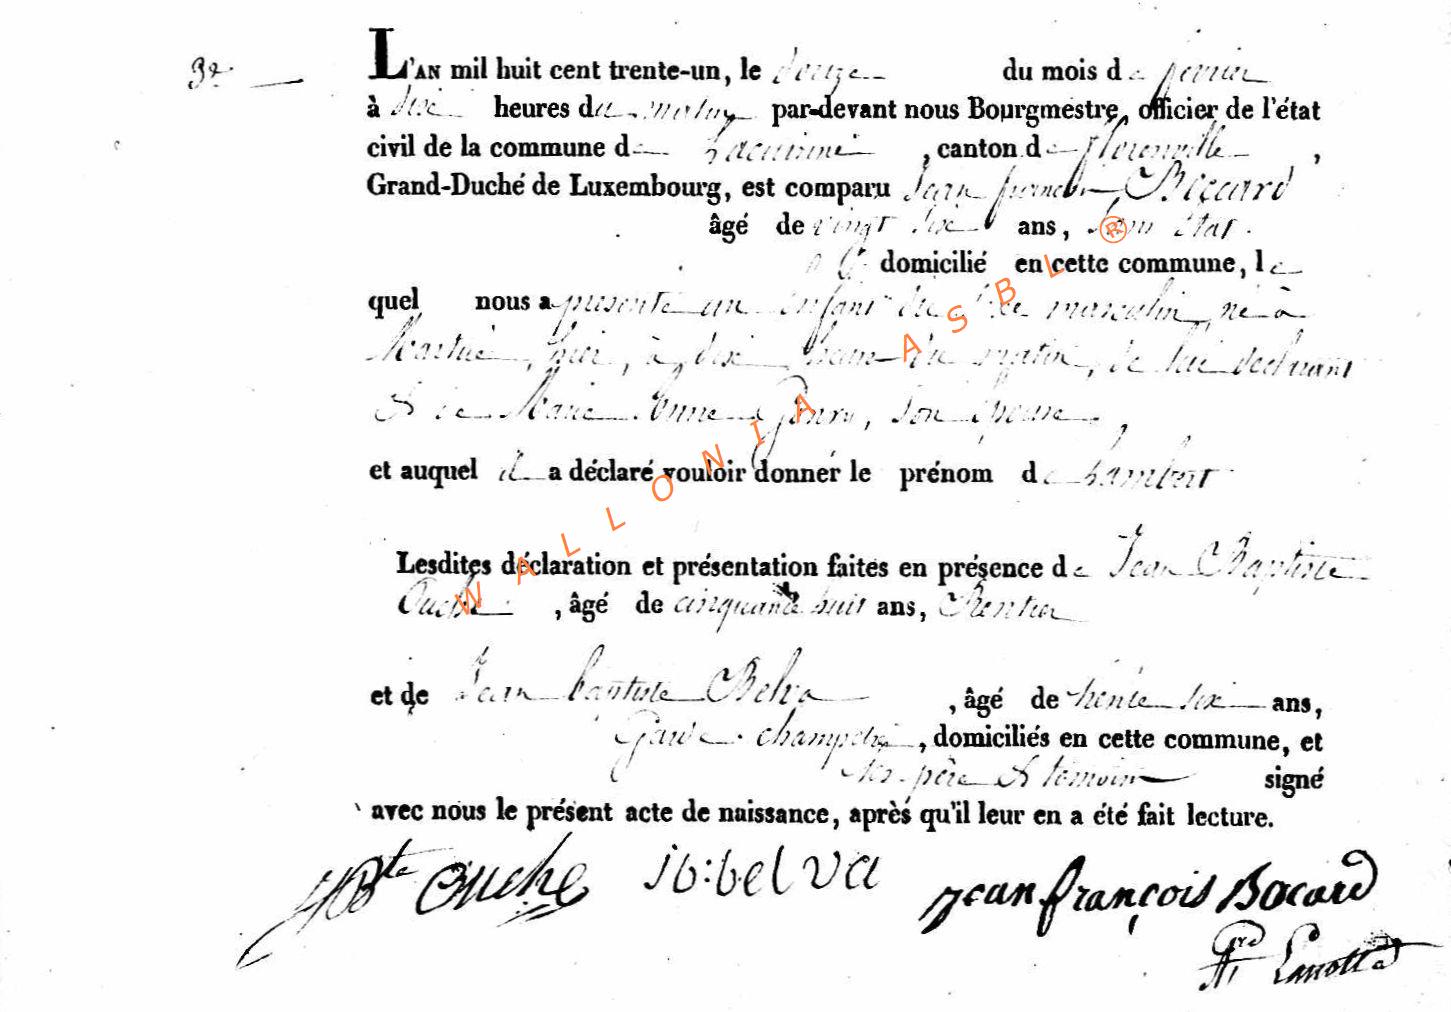 3e
L'AN mil huit cent trente-un, le douze du mois de fevrier
à dix heures du matin par-devant nous Bourgmestre, officier de l'état
civil de la commune de Lacuisine, canton de florenville,
Grand-Duché de Luxembourg, est comparu Jean françois Boccard
âgé de vingt six ans, Sans état
domicilié en cette commune, le
quel nous a présenté un enfant du Sexe masculin, né à
Martué, hier, à dix heures du matin, de lui déclarant
et de Marie Anne, Son épouse,
et auquel il a déclaré vouloir donner le prénom de Lambert
Lesdites déclaration et présentation faites en présence de Jean Baptiste
Ouche, âgé de cinquante huit ans, Rentier
et de Jean baptiste Belva, âgé de trente six ans,
Garde champetre, domiciliés en cette commune, et
père et temoins signé
avec nous le présent acte de naissance, après qu'il leur en a été fait lecture.
JBte Ouche jb:belva jean françois Bocard
WALLONIA ASBL ®